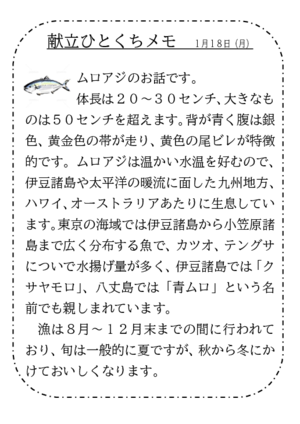 献立ひとくちメモ　1月18日（月）
ムロアジのお話です。
体長は２０～３０センチ、大きなも
のは５０センチを超えます。背が青く腹は銀
色、黄金色の帯が走り、黄色の尾ビレが特徴
的です。ムロアジは温かい水温を好むので、
伊豆諸島や太平洋の暖流に面した九州地方、
ハワイ、オーストラリアあたりに生息してい
ます。東京の海域では伊豆諸島から小笠原諸
島まで広く分布する魚で、カツオ、テングサ
についで水揚げ量が多く、伊豆諸島では「ク
サヤモロ」、八丈島では「青ムロ」という名
前でも親しまれています。
漁は８月～１２月末までの間に行われて
おり、旬は一般的に夏ですが、秋から冬にか
けておいしくなります。